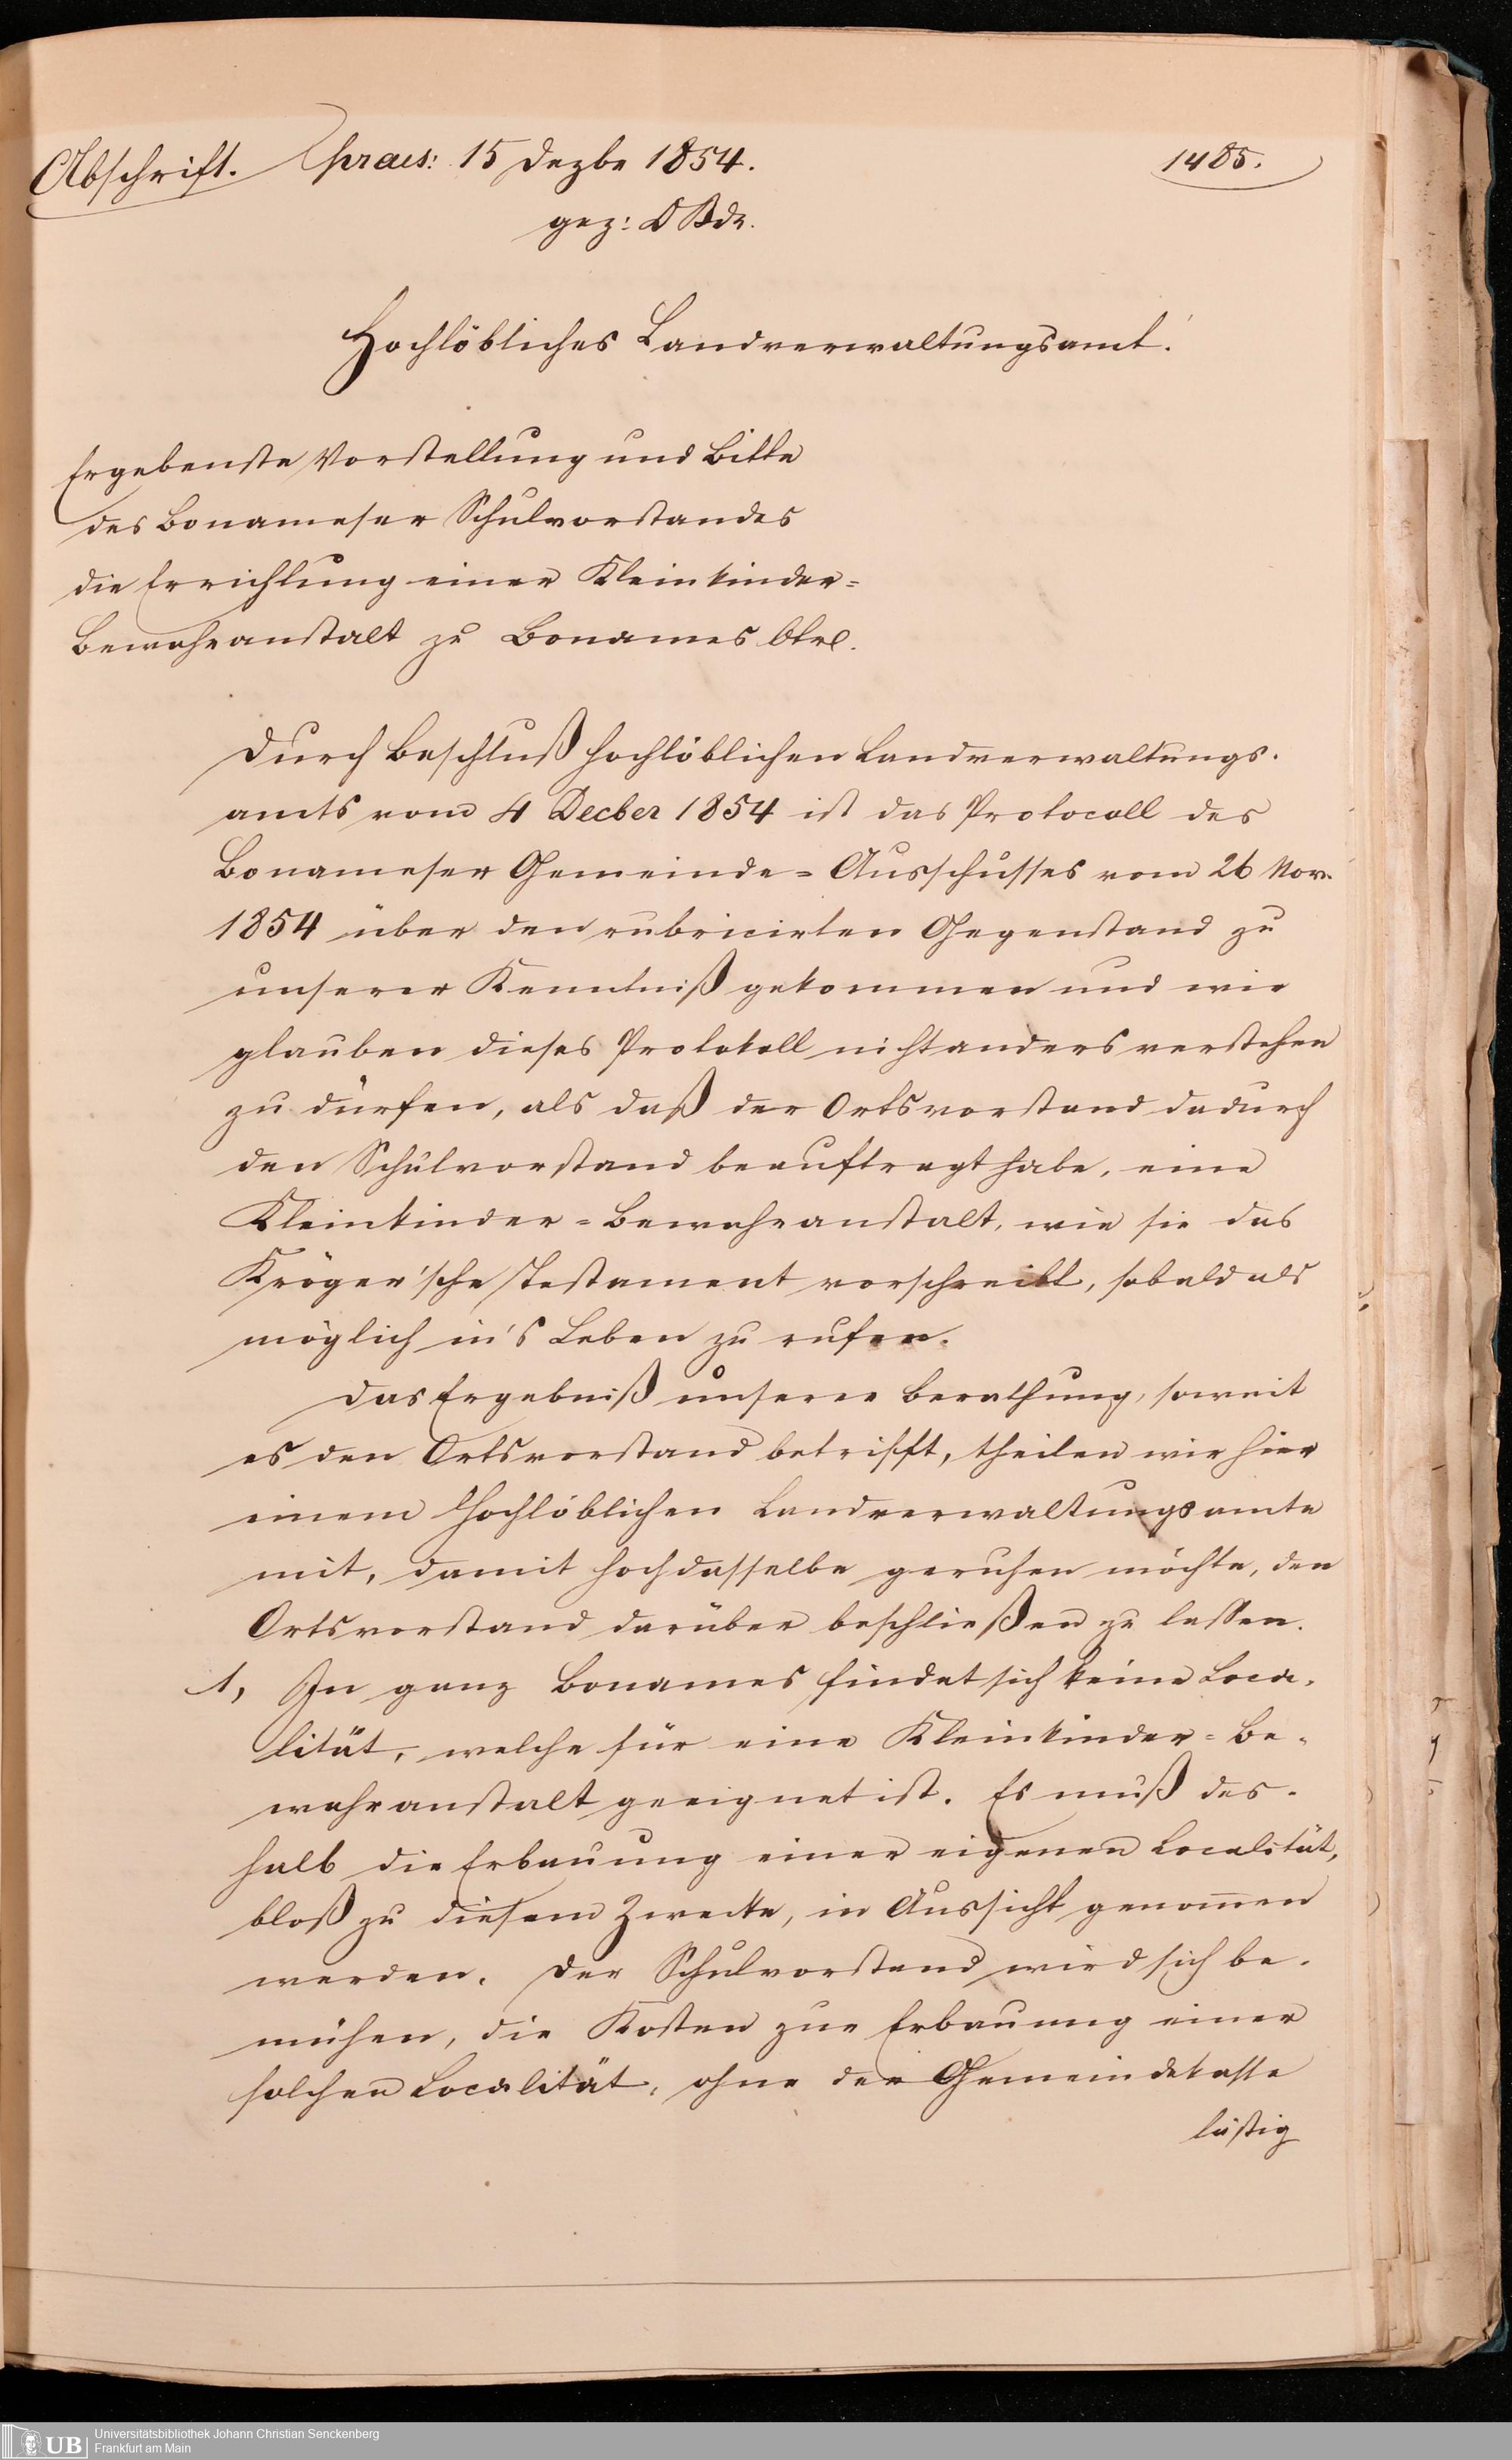 Abschrift. praes: 15 Dezbr 1854. 1485.
gez:
Hochlöbliches Landverwaltungsamt.
Ergebenste Vorstellung und Bitte
des Bonameser Schulvorstandes
die Errichtung einer Kleinkinder=
Bewahranstalt zu Bonames btrl.
Durch Beschluß hochlöblichen Landverwaltungs-
amts vom 4 Decber 1854 ist das Protocoll des
Bonameser Gemeinde=Ausschusses vom 26 Nov.
1854 über den rubricirten Gegenstand zu
unserer Kenntniß gekommen und wir
glauben dieses Protokoll nicht anders verstehen
zu dürfen, als daß der Ortsvorstand dadurch
den Schulvorstand beauftragt habe, eine
Kleinkinder=Bewahranstalt, wie sie das
Kröger'sche Testament vorschreibt, sobald als
möglich in's Leben zu rufen.
Das Ergebniß unserer Berathung, soweit
es den Ortsvorstand betrifft, theilen wir hier
einem Hochlöblichen Landverwaltungsamte
mit, damit hochdasselbe geruhen möchte, den
Ortsvorstand darüber beschließen zu lassen.
1, In ganz Bonames findet sich keine Loca-
lität, welche für eine Kleinkinder=Be-
wahranstalt geeignet ist. Es muß des-
halb die Erbauung einer eigenen Localität,
bloß zu diesem Zwecke, in Aussicht genom̅en
werden. Der Schulvorstand wird sich be-
mühen, die Kosten zur Erbauung einer
solchen Localität, ohne der Gemeindekasse
lästig
UB
Universitätsbibliothek Johann Christian Senckenberg
Frankfurt am Main